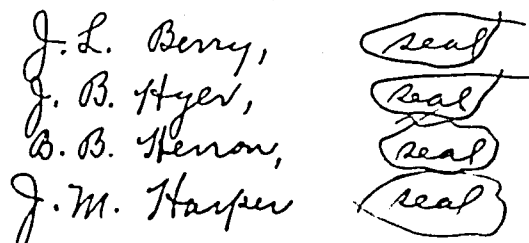 J. L. Berry, seal
J. B. Hyer, seal
B. B. Herron, seal
J. M. Harper seal